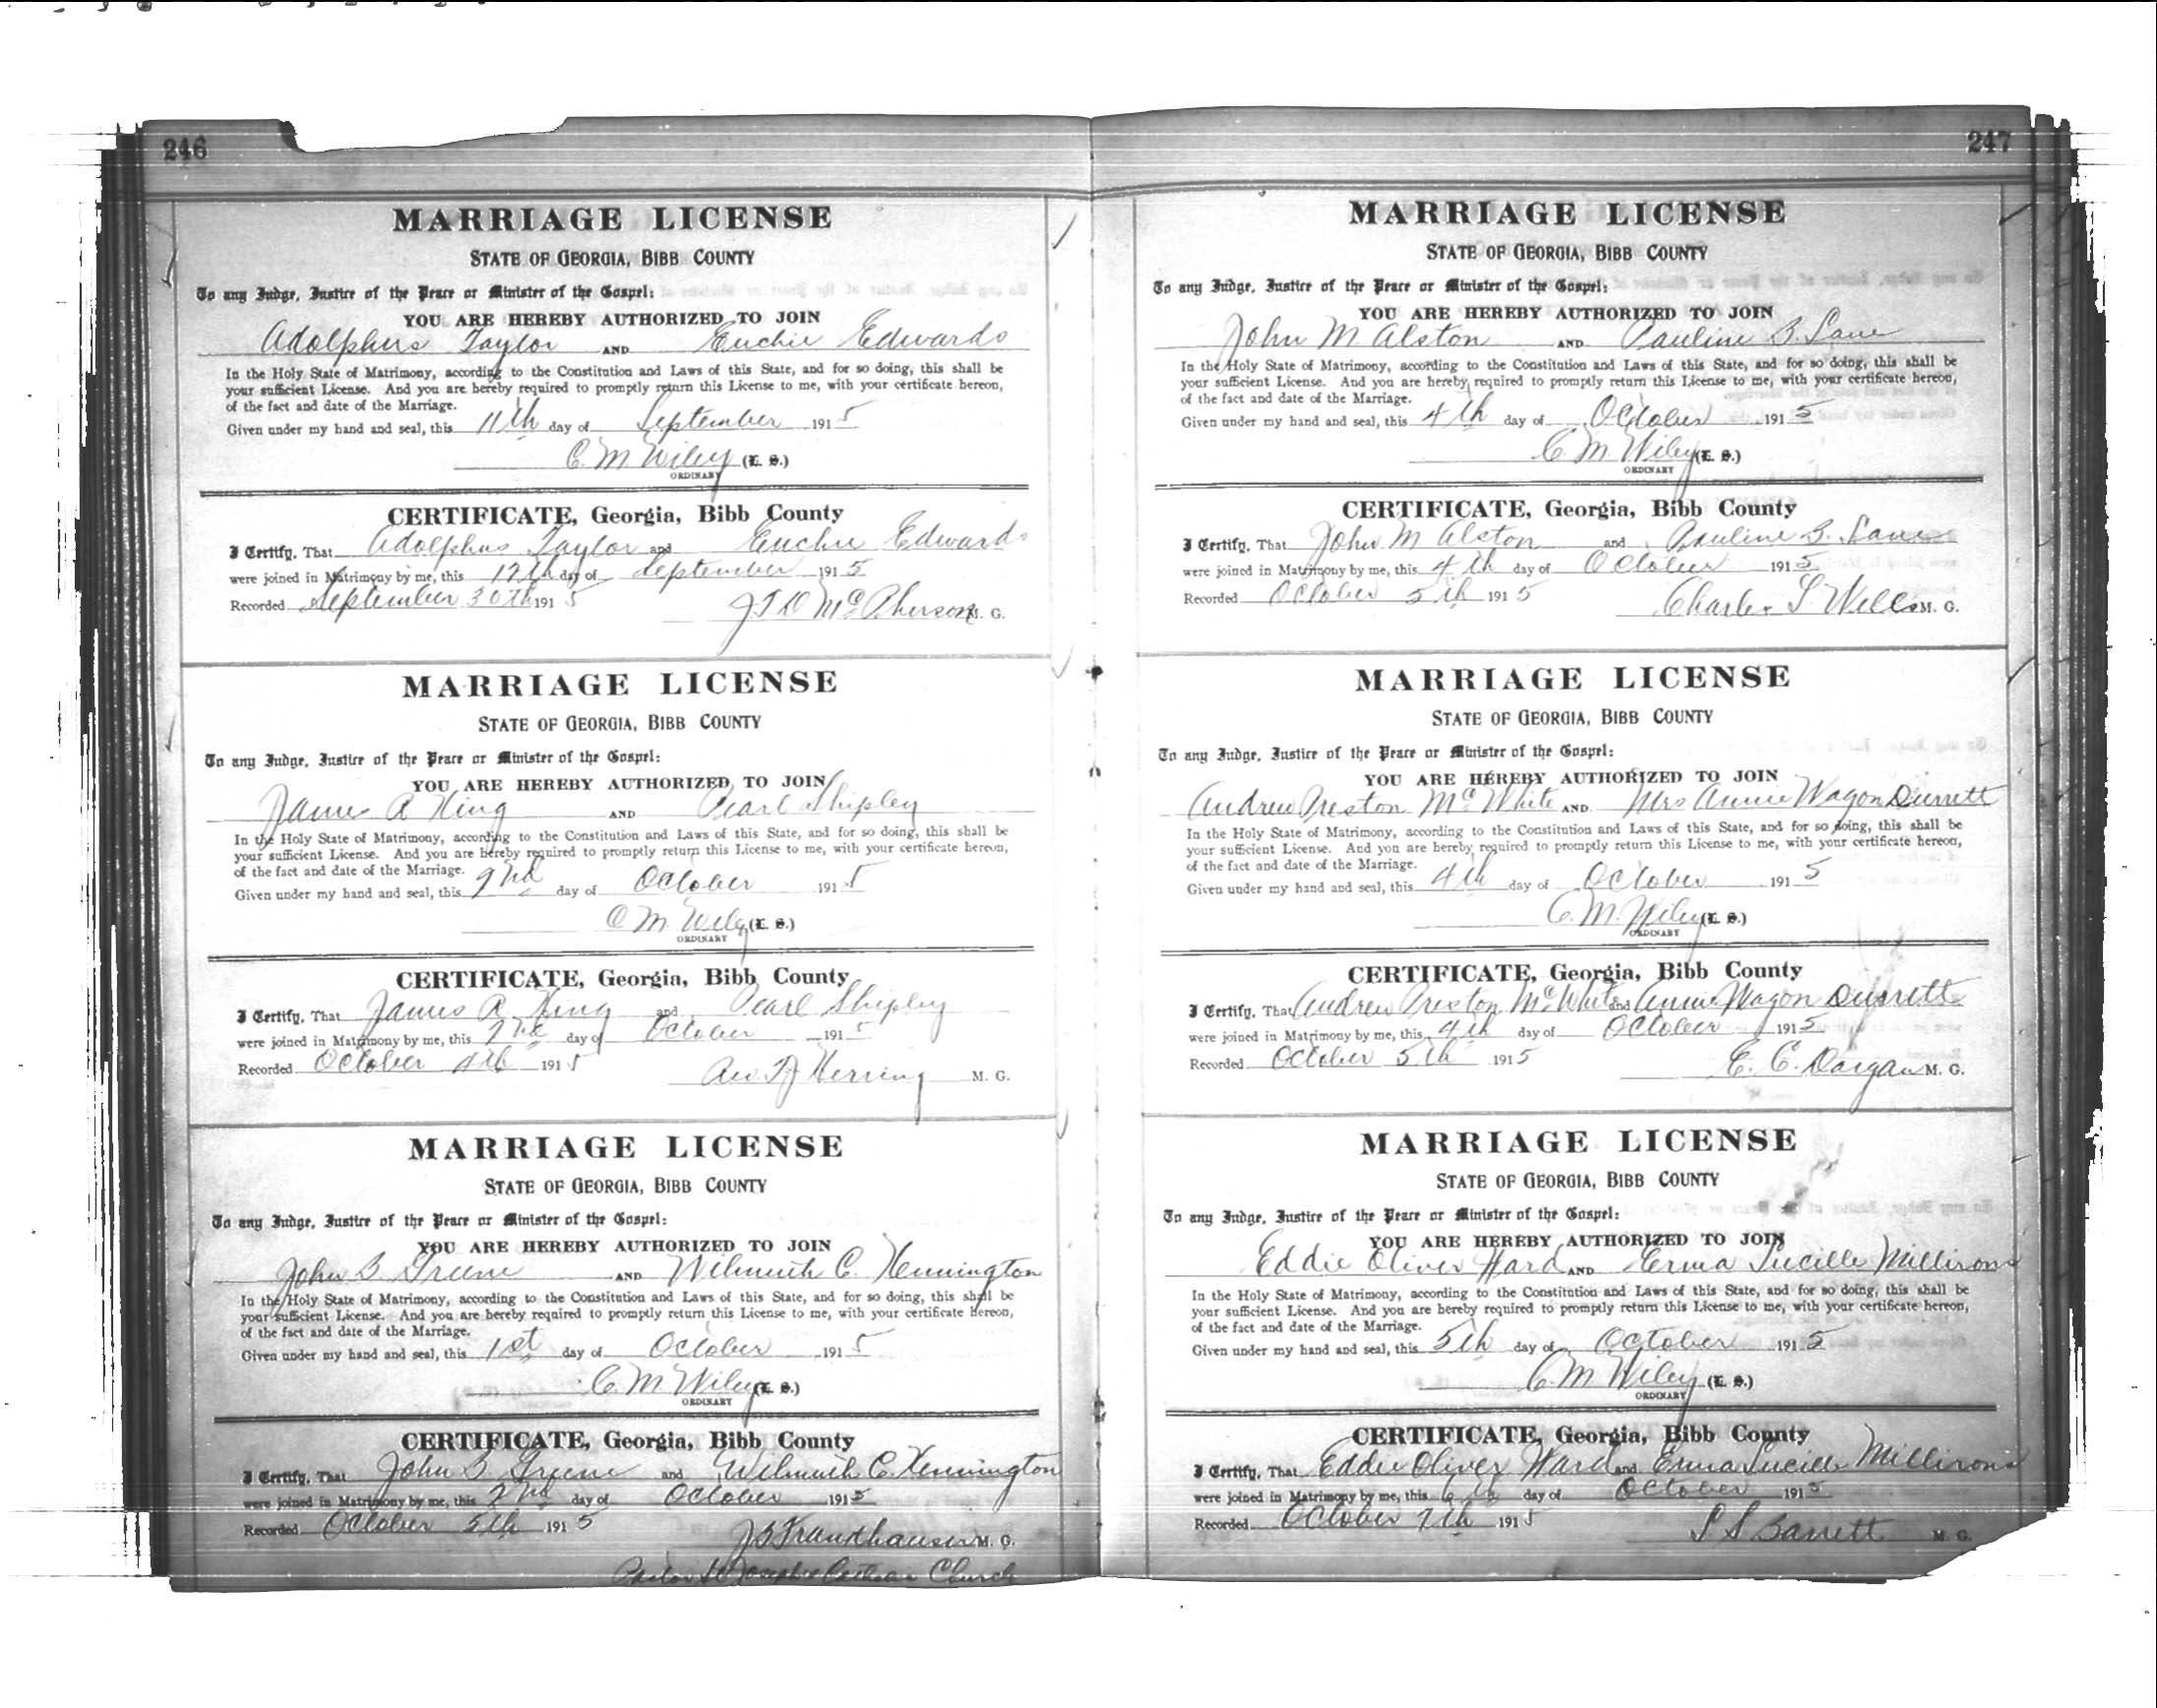 246
MARRIAGE LICENSE
STATE OF GEORGIA, BIBB COUNTY
To any Judge, Justice of the Peace or Minister of the Gospel:
YOU ARE HEREBY AUTHORIZED TO JOIN
Adolphus Taylor AND Euchie Edwards
In the Holy State of Matrimony, according to the Constitution and Laws of this State, and for so doing, this shall be
your sufficient License. And you are hereby required to promptly return this License to me, with your certificate hereon,
of the fact and date of the Marriage.
Given under my hand and seal, this 11th day of September 1915
C. M. Wiley (L. S.)
ORDINARY
CERTIFICATE, Georgia, Bibb County
I Certify, That Adolphus Taylor and Euchie Edwards
were joined in Matrimony by me, this 12th day of September 1915
Recorded September 30th 1915
J T D McPherson M. G.
MARRIAGE LICENSE
STATE OF GEORGIA, BIBB COUNTY
To any Judge, Justice of the Peace or Minister of the Gospel:
YOU ARE HEREBY AUTHORIZED TO JOIN
James R King AND Pearl Shipley
In the Holy State of Matrimony, according to the Constitution and Laws of this State, and for so doing, this shall be
your sufficient License. And you are hereby required to promptly return this License to me, with your certificate hereon,
of the fact and date of the Marriage.
Given under my hand and seal, this 2nd day of October 1915
C M. Wiley (L. S.)
ORDINARY
CERTIFICATE, Georgia, Bibb County
I Certify, That James R King and Pearl Shipley
were joined in Matrimony by me, this 2nd day of October 1915
Recorded October 4th 1915
Rev. T J Herring M. G.
MARRIAGE LICENSE
STATE OF GEORGIA, BIBB COUNTY
To any Judge, Justice of the Peace or Minister of the Gospel:
YOU ARE HEREBY AUTHORIZED TO JOIN
John B Greene AND Wilmuth C. Kennington
In the Holy State of Matrimony, according to the Constitution and Laws of this State, and for so doing, this shall be
your sufficient License. And you are hereby required to promptly return this License to me, with your certificate hereon,
of the fact and date of the Marriage.
Given under my hand and seal, this 1st day of October 1915
C. M Wiley (L. S.)
ORDINARY
CERTIFICATE, Georgia, Bibb County
I Certify, That John B Greene and Wilmuth C Kennington
were joined in Matrimony by me, this 2nd day of October 1915
Recorded October 5th 1915
J B Frankhauser M. G.
Pastor St Josephs Church
247
MARRIAGE LICENSE
STATE OF GEORGIA, BIBB COUNTY
To any Judge, Justice of the Peace or Minister of the Gospel:
YOU ARE HEREBY AUTHORIZED TO JOIN
John M Alston AND Pauline B. Lane
In the Holy State of Matrimony, according to the Constitution and Laws of this State, and for so doing, this shall be
your sufficient License. And you are hereby required to promptly return this License to me, with your certificate hereon,
of the fact and date of the Marriage.
Given under my hand and seal, this 4th day of October 1915
C. M. Wiley (L. S.)
ORDINARY
CERTIFICATE, Georgia, Bibb County
I Certify, That John M Alston and Pauline B. Lane
were joined in Matrimony by me, this 4th day of October 1915
Recorded October 5th 1915
Charles L Wells M. G.
MARRIAGE LICENSE
STATE OF GEORGIA, BIBB COUNTY
To any Judge, Justice of the Peace or Minister of the Gospel:
YOU ARE HEREBY AUTHORIZED TO JOIN
Andrew Preston McWhite AND Mrs Annie Wagon Durrett
In the Holy State of Matrimony, according to the Constitution and Laws of this State, and for so doing, this shall be
your sufficient License. And you are hereby required to promptly return this License to me, with your certificate hereon,
of the fact and date of the Marriage.
Given under my hand and seal, this 4th day of October 1915
C. M. Wiley (L. S.)
ORDINARY
CERTIFICATE, Georgia, Bibb County
I Certify, That Andrew Preston McWhite and Annie Wagon Durrett
were joined in Matrimony by me, this 4th day of October 1915
Recorded October 5th 1915
E. C. Dargan M. G.
MARRIAGE LICENSE
STATE OF GEORGIA, BIBB COUNTY
To any Judge, Justice of the Peace or Minister of the Gospel:
YOU ARE HEREBY AUTHORIZED TO JOIN
Eddie Oliver Ward AND Erma Lucille Millirons
In the Holy State of Matrimony, according to the Constitution and Laws of this State, and for so doing, this shall be
your sufficient License. And you are hereby required to promptly return this License to me, with your certificate hereon,
of the fact and date of the Marriage.
Given under my hand and seal, this 5th day of October 1915
C. M Wiley (L. S.)
ORDINARY
CERTIFICATE, Georgia, Bibb County
I Certify, That Eddie Oliver Ward and Erma Lucille Millirons
were joined in Matrimony by me, this 6th day of October 1915
Recorded October 7th 1915
L S Barrett M. G.